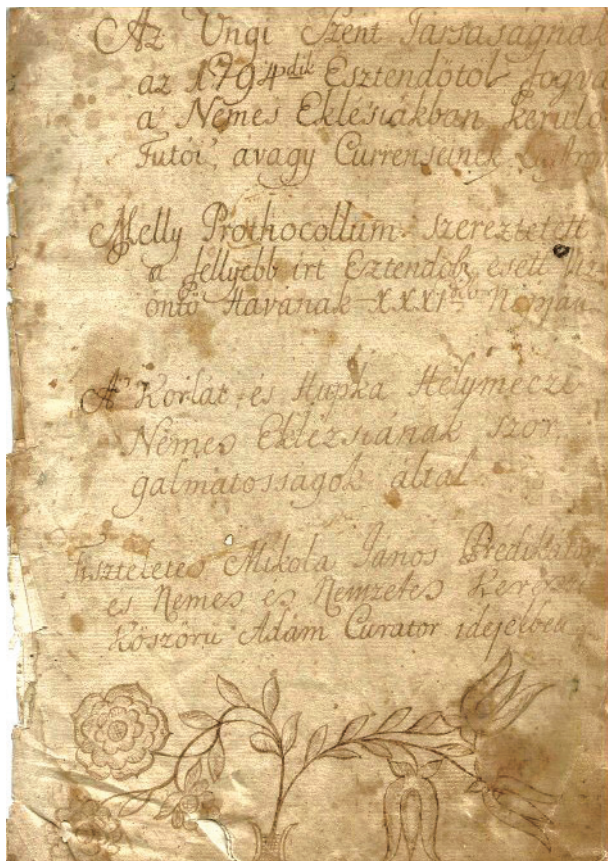 Az Ungi Szent Társaságnak
az 1794dik Esztendötöl fogva
a Nemes Eklésiákban kerülö
Futói, avagy Currenseinek
Melly Prothocollum szereztetett
a fellyebb irt Esztendöb, esett Viz
öntö Havának XXXIdik Napján
A' Korlát és Hupka Helymeczi
Nemes Eklézsiának szor
galmatosságok által
Tiszteletes Mikola János Prédikátor
és Nemes és Nemzetes
Köszörü Ádám Curator idejekben